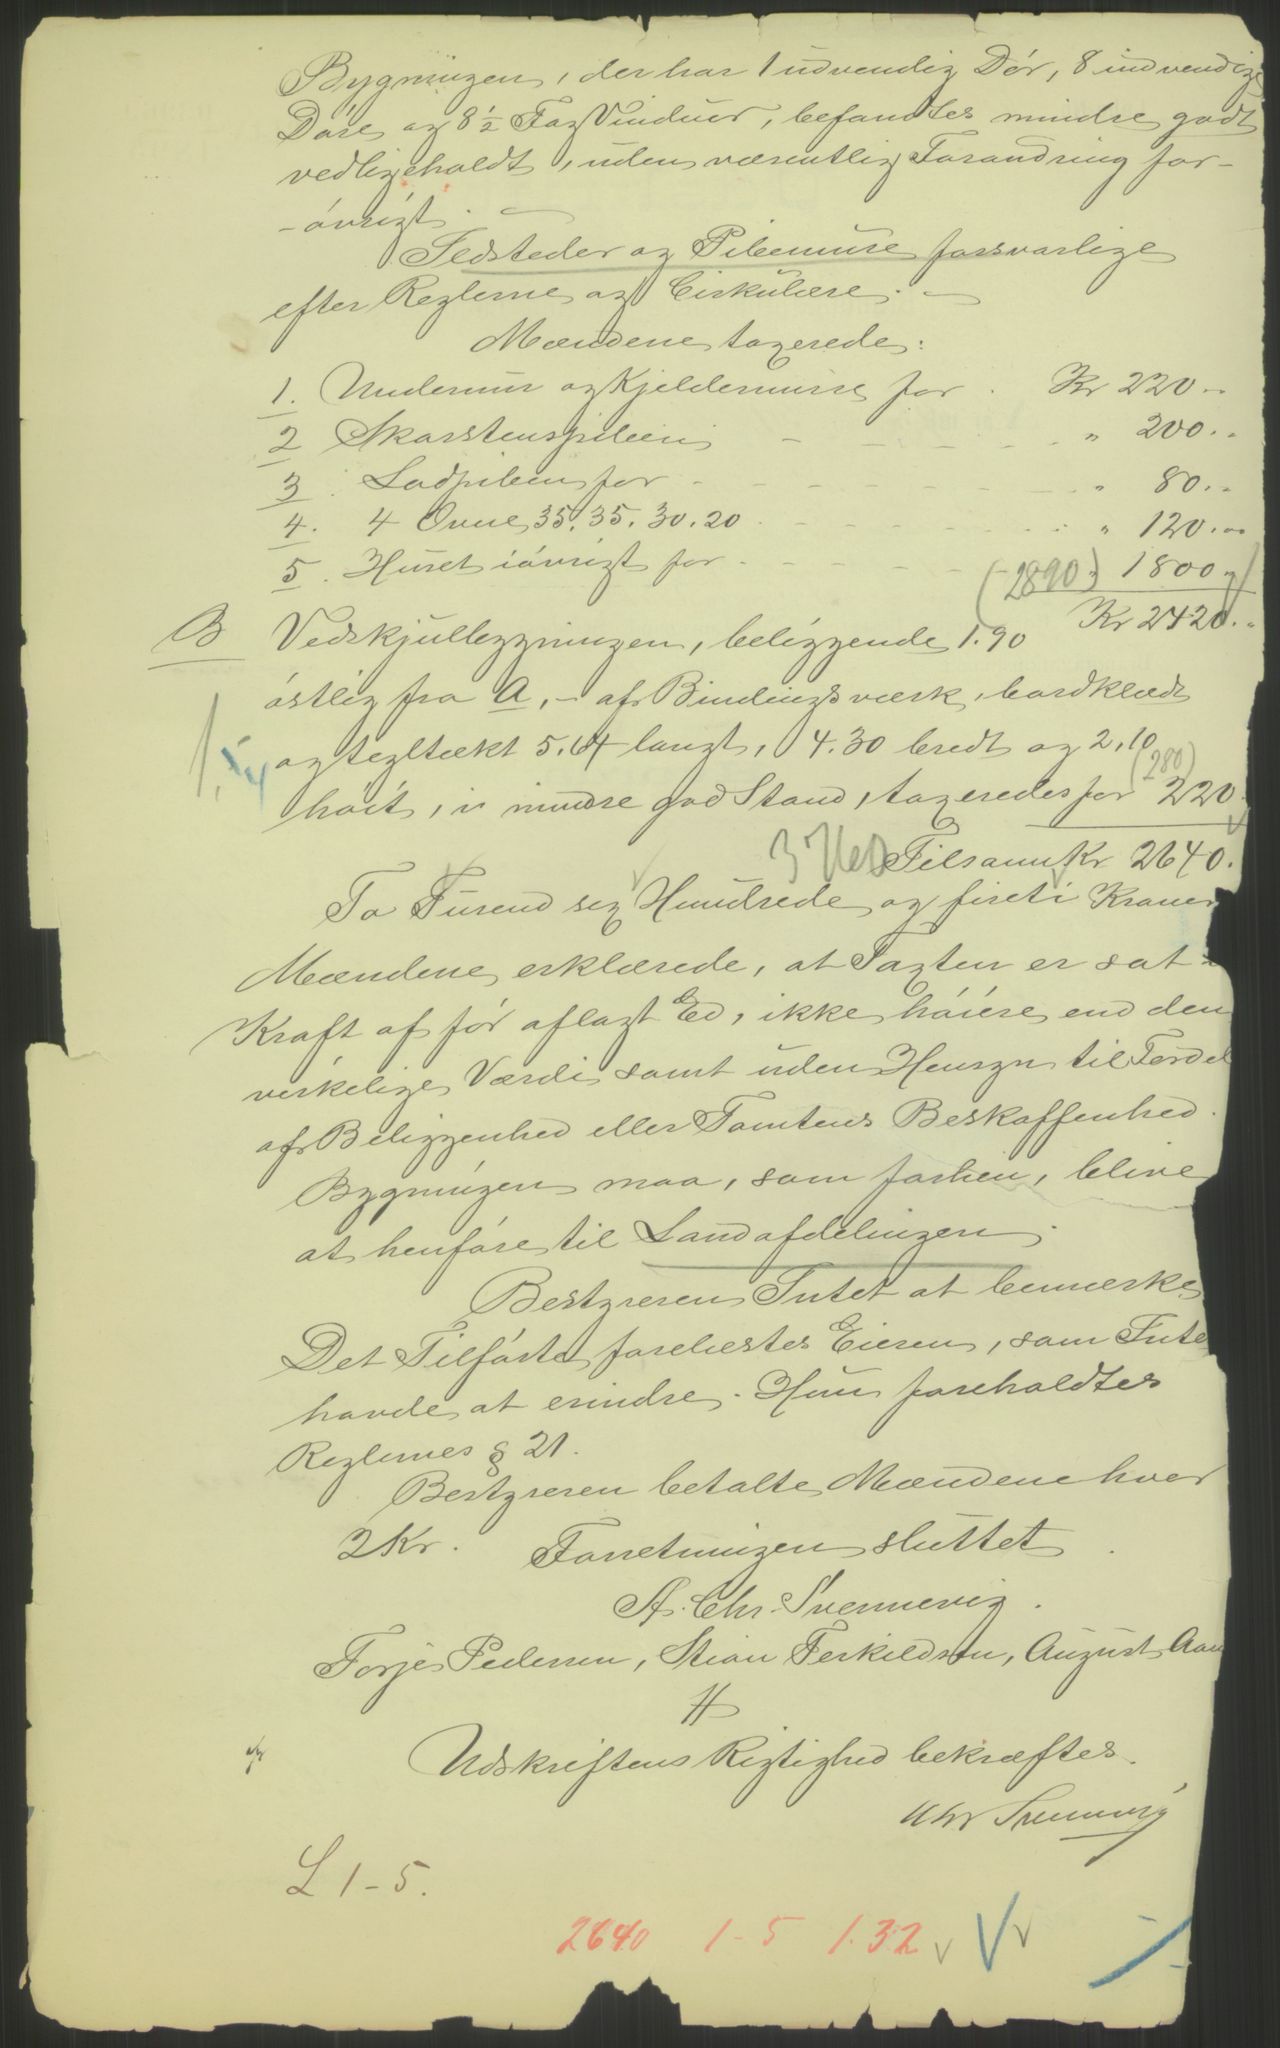 Bygningen, der har 1 udvendig Dør, 8 indvendige
Døre og 8 1/2 Fag Vinduer, befandtes mindre godt
vedligeholdt, uden væsentlig Forandring for-
-øvrigt.
Ildsteder og Pibemure forsvarlige
efter Reglerne og Cirkulære.
Mændene taxerede:
1. Undermur og Kjeldermure for . Kr 220 "
2 Skorstenspiben - - - " 200. "
3. Ladpiben for - - - " 80. "
4. 4 Ovne, 35. 35. 30. 20 - - - " 120. "
5. Huset iøvrigt for - - - (2890) 1800 "
Kr 2420. "
B Vedskjulbygningen, beliggende 1.90
østlig fra A, - af Bindingsværk, bordklædt
og tegltækt 5.64 langt, 4.30 bredt og 2,10
høit, i mindre god Stand, taxeredes for (280) 220.
Tilsam Kr 2640.
To Tusend sex Hundrede og fireti Kroner
Mændene erklærede, at Taxten er sat i
Kraft af før aflagt Ed, ikke høiere end den
virkelige Værdi samt uden Hensyn til Fordel
af Beliggenhed eller Tomtens Beskaffenhed.
Bygningen maa, som forhen, blive
at henføre til Landafdelingen.
Bestyreren Intet at bemærke
Det Tilførte forelæstes Eieren, som Inte
havde at erindre. Hun foreholdtes
Reglernes § 21.
Bestyreren betalte Mændene hver
2 Kr. Forretningen sluttet.
A. Chr. Svennevig.
Torje Pedersen, Stian Terkildsen, August Aan
Udskriftens Rigtighed bekræftes.
Chr Svennevig
L 1-5.
2640 1-5 1.32